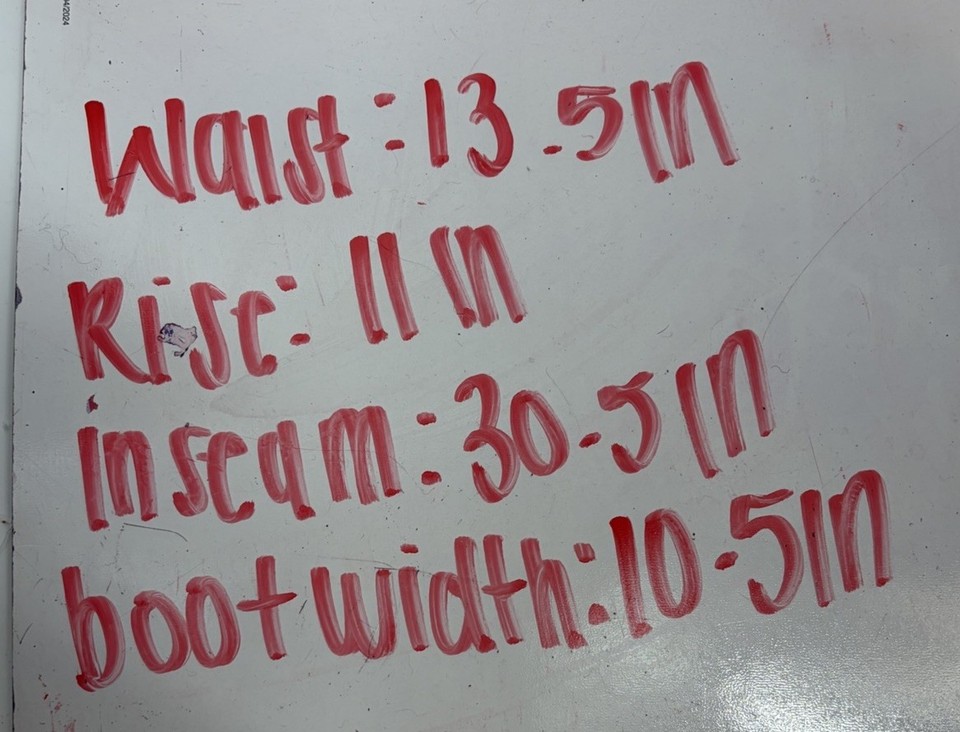 Waist: 13.5in
Rise: 11 in
inseam: 30.5 in
boot width: 10.5in